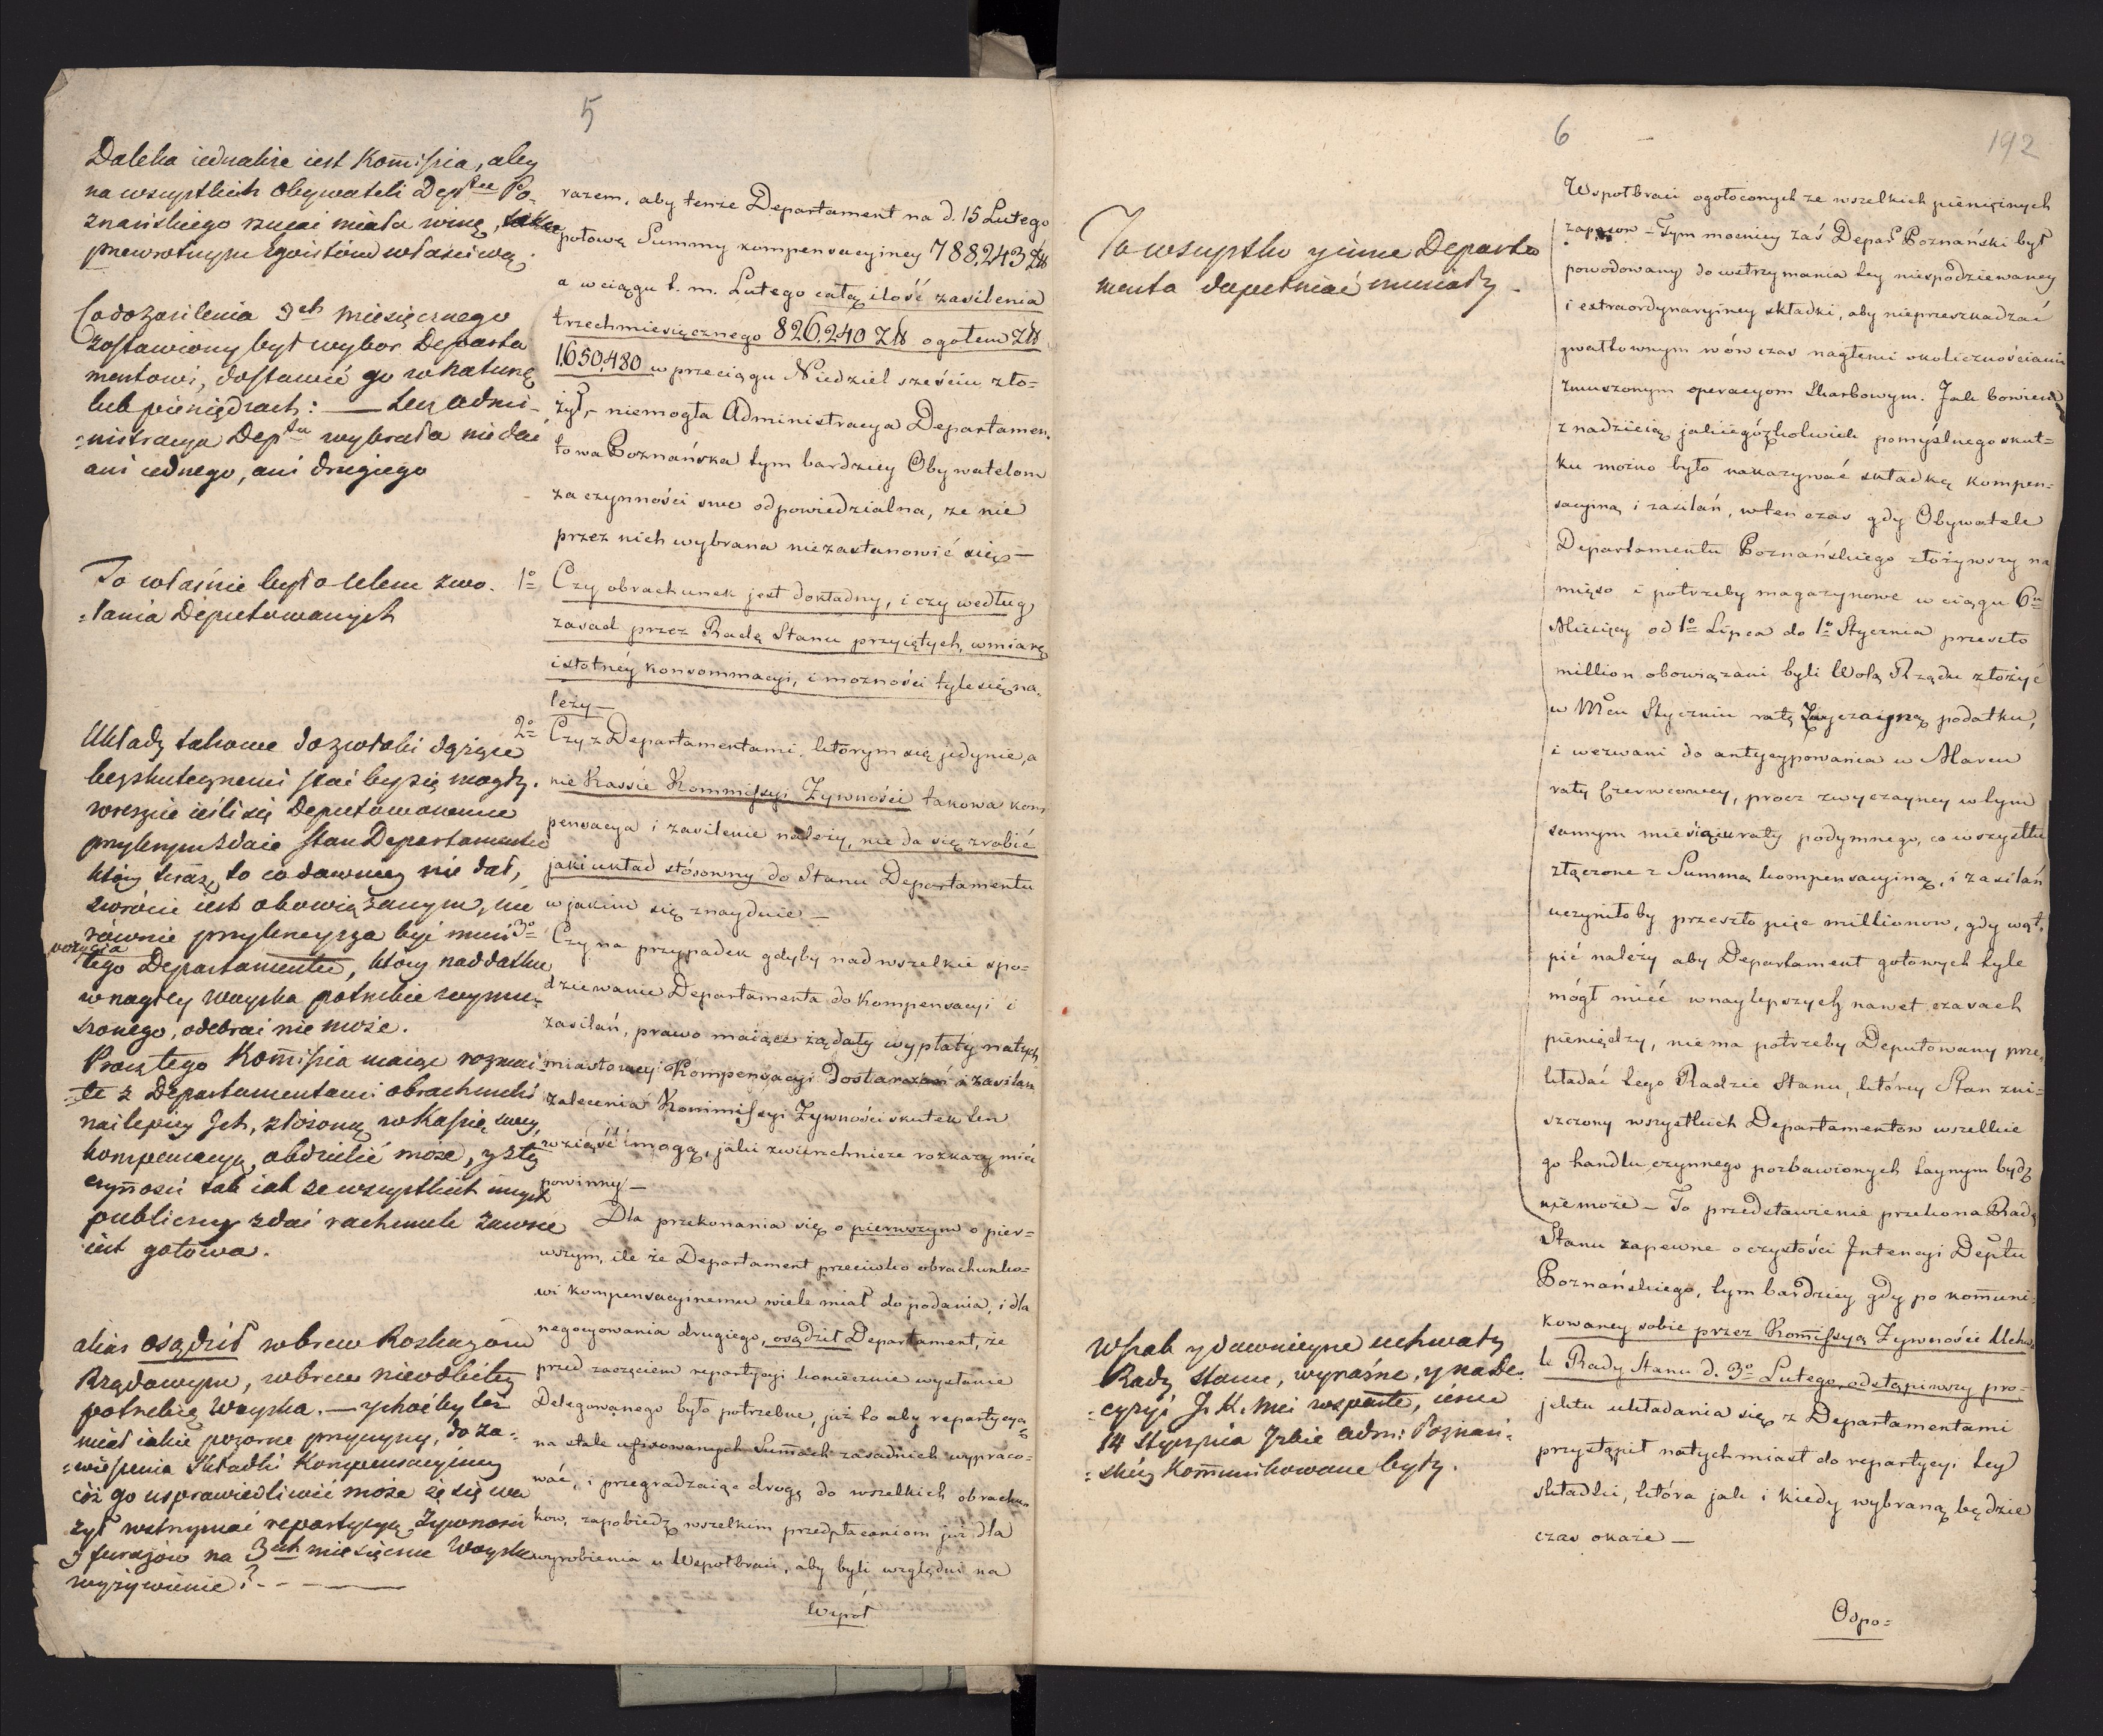 5
Daleka iednakże iest Kom̄issia, aby
na wszystkich Obywateli Deptu Po-
znańskiego rzucać miała winę,
przewrotnym Egoistom właściwą.
Co do zasilenia 3ch miesięcznego
zostawiony był wybor Departa
mentowi, dostawić go w naturze
lub pieniędzach: — Lecz Admi-
=nistracya Deptu wybrała nie dać
ani iednego, ani drugiego
To właśnie było celem zwo-
=łania Deputowanych
Układy takowe do zwłoki dążące
bezskutecznemi stać by się mogły.
wreszcie ieśli się Deputowanemu
przykrym zdaie stan Departamentu
który teraz, to co dawniey nie dał,
zwrócić iest obowiązanym, nie
rownie przykrzeysza być musi
pozycya
tego Departamentu, który naddatku
w nagłey woyska potrzebie wymu-
szonego, odebrać nie może.
Procz tego Kom̄issia maiąc rozmai
=te z Departamentami obrachunki
naylepiey Ich, złożoną w Kassie swey,
kompensacyą obdzielić może, y z tey
czynności tak iak ze wszystkich innych
publiczny zdać rachunek zawsze
iest gotowa.
alias osądził wbrew Rozkazom
Rządowym, wbrew nieodbitey
potrzebie Woyska. — y choćby też
miał iakie pozorne przyczyny, do za-
=wieszenia Składki Kompensacyiney
cóż go usprawiedliwić może że się wa
żył wstrzymać repartycyą Żywności
y furażów na 3ch miesięczne Woyska
wyżywienie? - - —
razem, aby tenże Departament na d. 15 Lutego
połowę Summy kompensacyiney 788,243 Zł
a w ciągu t. m. Lutego całą ilość zasilenia
trzechmiesięcznego 826,240 Zł ogołem Zł
1,650,480 w przeciągu Niedziel sześciu zło=
żył, — niemogła Administracya Departamen-
towa Poznańska tym bardziey Obywatelom
za czynności swe odpowiedzialna, że nie
przez nich wybrana niezastanowić się —
1o Czy obrachunek jest dokładny, i czy według
zasad przez Radę Stanu przyiętych, w miarę
istotnéy konsommacyi, i możności tyle się na-
leży —
2o Czy z Departamentami, którym się jedynie, a
nie Kassie Kommissyi Żywności takowa kom
pensacya i zasilenie należy, nie da się zrobić
jaki układ stósowny do Stanu Departamentu
w jakim się znayduie —
3o Czy na przypadek gdyby nad wszelkie spo=
dziewanie Departamenta do Kompensacyi i
zasilań, prawo maiące żądały wypłaty natych
miastowey Kompensacyi Dostarczań i zasilan
zalecenia Kommissyi Żywności skutek ten
wziąść mogą, jaki zwierzchnicze rozkazy mieć
powinny —
Dla przekonania się o pierwszym o pier=
wszym, ile że Departament przeciwko obrachunko=
wi kompensacyinemu wiele miał do podania, i dla
negocyowania drugiego, osądził Departament, że
przed zaczęciem repartycyi koniecznie wysłanie
Delegowanego było potrzebne, już to aby repartycyą
na stale ufixowanych Sum̄ach zasadnich wypraco=
wać, i przegradzaiąc drogę do wszelkich obrachun
kow, zapobiedz wszelkim przedpłaceniom już dla
wyrobienia u Wspołbraci, aby byli względni na
Wspoł
6
192
To wszystko y inne Departa
menta dopełniać musiały —
Wszak y dawnieysze uchwały
Rady Stanu, wyraźne, y na de-
=cyzyi J. K. Mci wsparte, ieszcze
14 Stycznia Izbie Adm: Poznań-
=skiéy Kom̄unikowane były.
Wspołbraci ogołoconych ze wszelkich pienięznych
zapasow — Tym mocniey zaś Depar̄ Poznański był
powodowany do wstrzymania tey niespodziewaney
i extraordynaryiney składki, aby nieprzeszkadzać
gwałtownym wówczas nagłemi okolicznościami
zmuszonym operacyom Skarbowym. Jak bowiem
z nadzieią jakiegóżkolwiek pomyślnego skut=
ku można było nakazywać składkę kompen=
sacyiną i zasilań, w ten czas gdy Obywatele
Departamentu Poznańskiego złożywszy na
mięso i potrzeby magazynowe w ciągu 6u
Miesięcy od 1o Lipca do 1o Stycznia przeszło
million obowiązani byli Wolą Rządu złożyć
w Mcu Styczniu ratę Zwyczayną podatku,
i wezwani do antycypowania w Marcu
raty Czerwcowey, procz zwyczayney w tym
samym miesiącu raty podymnego, co wszystko
złączone z Summą kompensacyiną, i zasilań
uczyniłoby przeszło pięć millionow, gdy wąt-
pić należy aby Departament gotowych tyle
mógł mieć w naylepszych nawet czasach
pieniędzy, niema potrzeby Deputowany prze-
kładać tego Radzie Stanu, którey Stan zni=
szczony wszystkich Departamentow wszelkie
go handlu czynnego pozbawionych taynym bydź
niemoże — To przedstawienie przekona Radę
Stanu zapewne o czystości Intencyi Deptu
Poznańskiego, tym bardziey gdy po kom̄uni-
kowaney sobie przez Kom̄issyą Żywności Uchwa
le Rady Stanu d. 3o Lutego, odstąpiwszy pro=
jektu układania się z Departamentami
przystąpił natychmiast do repartycyi tey
składki, która jak i kiedy wybraną będzie
czas okaże —
Odpo=